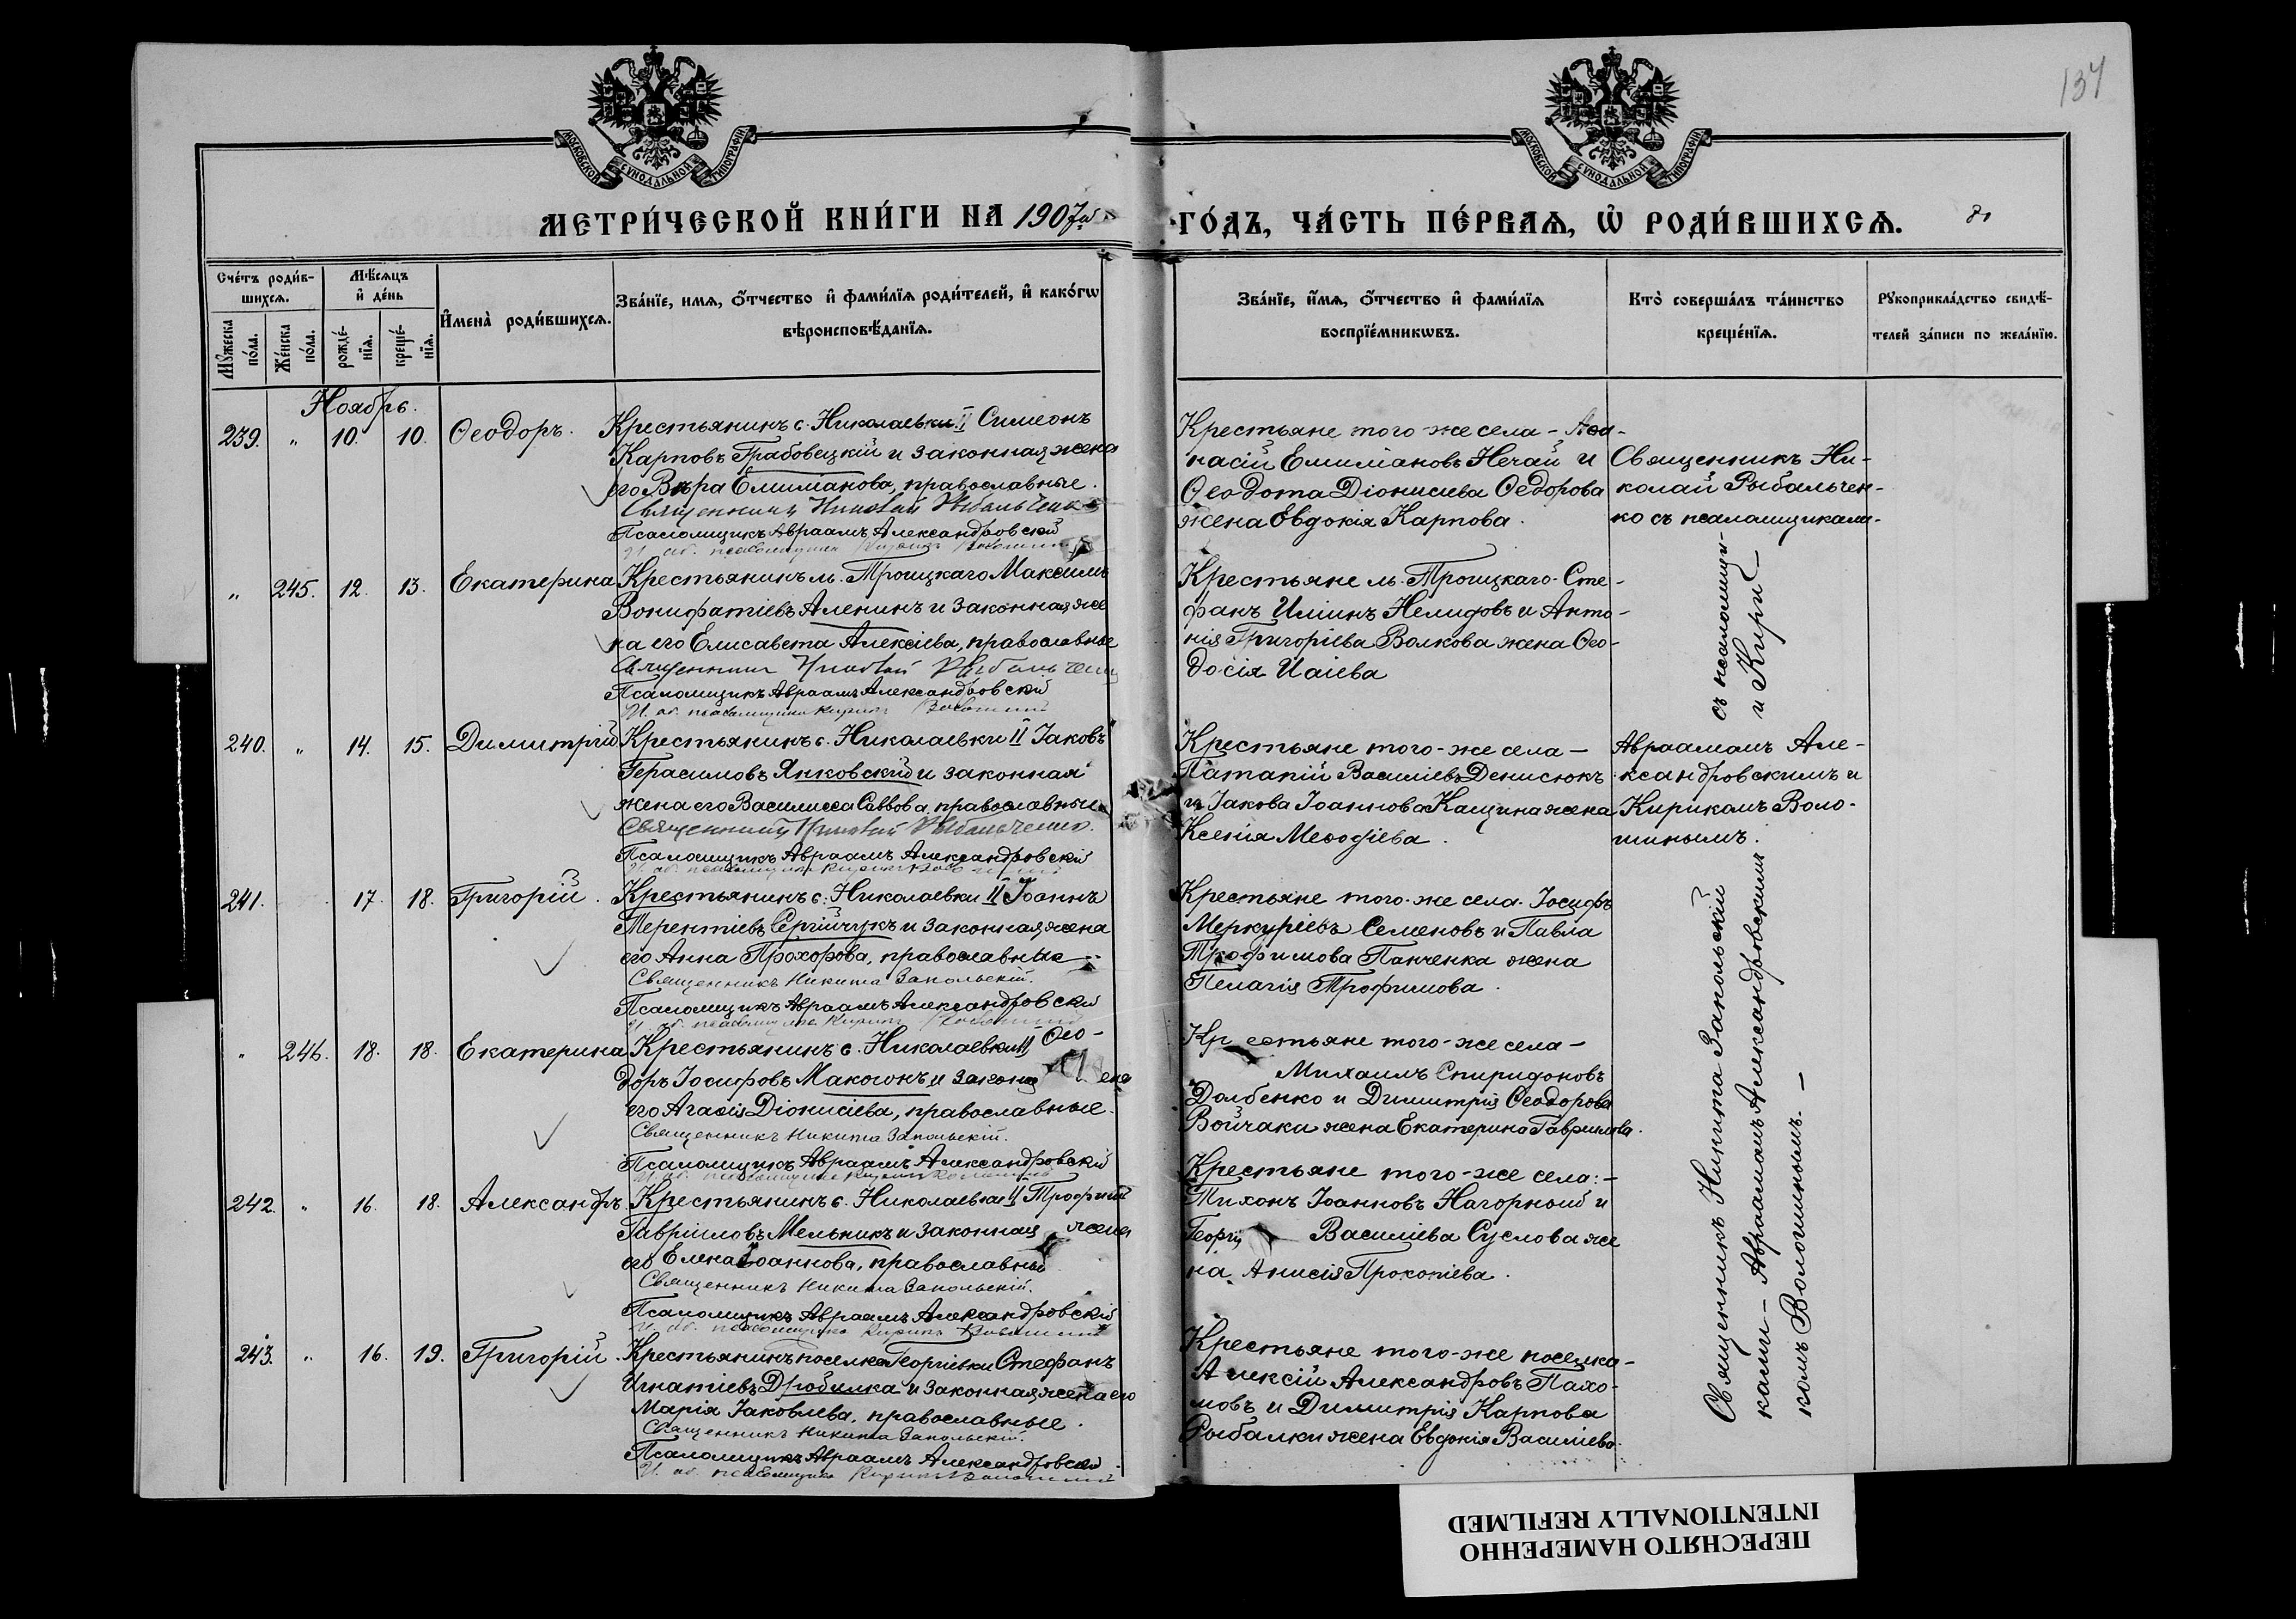 137
МОСКОВСКОЙ СѴНОДАЛЬНОЙ ТИПОГРАФІИ
МОСКОВСКОЙ СѴНОДАЛЬНОЙ ТИПОГРАФІИ
МЕТРИ́ЧЕСКОЙ КНИ́ГИ НА 1907й ГО́ДЪ, ЧА́СТЬ ПЕ́РВАѦ, Ѡ҆ РОДИ́ВШИХСѦ.
Сче́тъ роди́в-
шихсѧ.
Мꙋ́жеска по́ла.
Же́нска по́ла.
Мѣ́сѧцъ
и҆ де́нь
рожде́-
нїѧ.
креще́-
нїѧ.
И҆мена̀ роди́вшихсѧ.
Зва́нїе, имѧ, ѻ҆́тчество и҆ фами́лїѧ роди́телей, и҆ како́гѡ
вѣроисповѣ́данїѧ.
Зва́нїе, и҆́мѧ, ѻ҆́тчество и҆ фами́лїѧ
воспрїе́мникѡвъ.
Кто̀ соверша́лъ та́инство
креще́нїѧ.
Рꙋкоприкла́дство свидѣ́-
телей за́писи по жела́нїю.
Ноябрь.
239. " 10. 10. Ѳеодоръ.
Крестьянинъ с. Николаевки II Симеонъ
Карповъ Грабовецкій и законная жена
его Вѣра Емиліанова, православные.
Священникъ Николай Рыбальченко
Псаломщикъ Авраамъ Александровскій
И. об. псаломщика Кирикъ Волошинъ
Крестьяне того-же села - Аѳа-
насій Емиліановъ Нечай и
Ѳеодота Діонисіева Ѳедорова
жена Евдокія Карпова.
Священникъ Ни-
колай Рыбальчен-
ко съ псаломщиками-
" 245. 12. 13. Екатерина
Крестьянинъ м. Троицкаго Максимъ
Вонифатіевъ Аленинъ и законная же
на его Елисавета Алексіева, православные
Священникъ Николай Рыбальченко
Псаломщикъ Авраамъ Александровскій
И. об. псаломщика Кирикъ Волошинъ
Крестьяне м. Троицкаго-Сте-
фанъ Иліинъ Нелидовъ и Анто-
нія Григоріева Волкова жена Ѳео-
досія Исаіева
съ псаломщи-
и Кири-
240. " 14. 15. Димитрій
Крестьянинъ с. Николаевки II Іаковъ
Герасимовъ Янковскій и законная
жена его Василисса Саввова, православные
Священникъ Николай Рыбальченко.
Псаломщикъ Авраамъ Александровскій
И. об. псаломщика Кирикъ Волошинъ
Крестьяне того-же села-
Патапій Василіевъ Денисюкъ
и Іакова Іоаннова Кащина жена
Ксенія Меѳодіева.
Авраамомъ Але-
ксандровскимъ и
Кирикомъ Воло-
шинымъ.
241. 17. 18. Григорій.
Крестьянинъ с. Николаевки II Іоаннъ
Терентіевъ Сергійчукъ и законная жена
его Анна Прохорова, православные
Священникъ Никита Запольскій.
Псаломщикъ Авраамъ Александровскій
И. об. псаломщика Кирикъ Волошинъ
Крестьяне того-же села-Іосифъ
Меркуріевъ Семеновъ и Павла
Трофимова Панченка жена
Пелагія Трофимова.
" 246. 18. 18. Екатерина
Крестьянинъ с. Николаевки II Ѳео-
доръ Іосифовъ Макогонъ и закон жена
его Агаѳія Діонисіева, православные.
Священникъ Никита Запольскій.
Псаломщикъ Авраамъ Александровскій
И. об. псаломщика Кирикъ Волошинъ
Крестьяне того-же села-
Михаилъ Спиридоновъ
Долбенко и Димитрія Ѳеодорова
Войчака жена Екатерина Гавриилова.
242. " 16. 18. Александръ.
Крестьянинъ с. Николаевки II Трофимъ
Гавріиловъ Мельникъ и законная жена
его Елена Іоаннова, православные
Священникъ Никита Запольскій.
Псаломщикъ Авраамъ Александровскій
И. об. псаломщика Кирикъ Волошинъ
Крестьяне того-же села:-
Тихонъ Іоанновъ Нагорный и
Георгія Василіева Суслова же
на Анисія Прокопіева.
243. " 16. 19. Григорій.
Крестьянинъ поселка Георгіевки Стефанъ
Игнатіевъ Дробилка и законная жена его
Марія Іаковлева, православные.
Священникъ Никита Запольскій.
Псаломщикъ Авраамъ Александровскій
И. об. псаломщика Кирикъ Волошинъ
Крестьяне того-же поселка-
Алексій Александровъ Пахо-
мовъ и Димитрія Карпова
Рыбалки жена Евдокія Василіева.
Священникъ Никита Запольскій
ками- Авраамомъ Александровскимъ
комъ Волошинымъ.-
ПЕРЕСНЯТО НАМЕРЕННО
INTENTIONALLY REFILMED